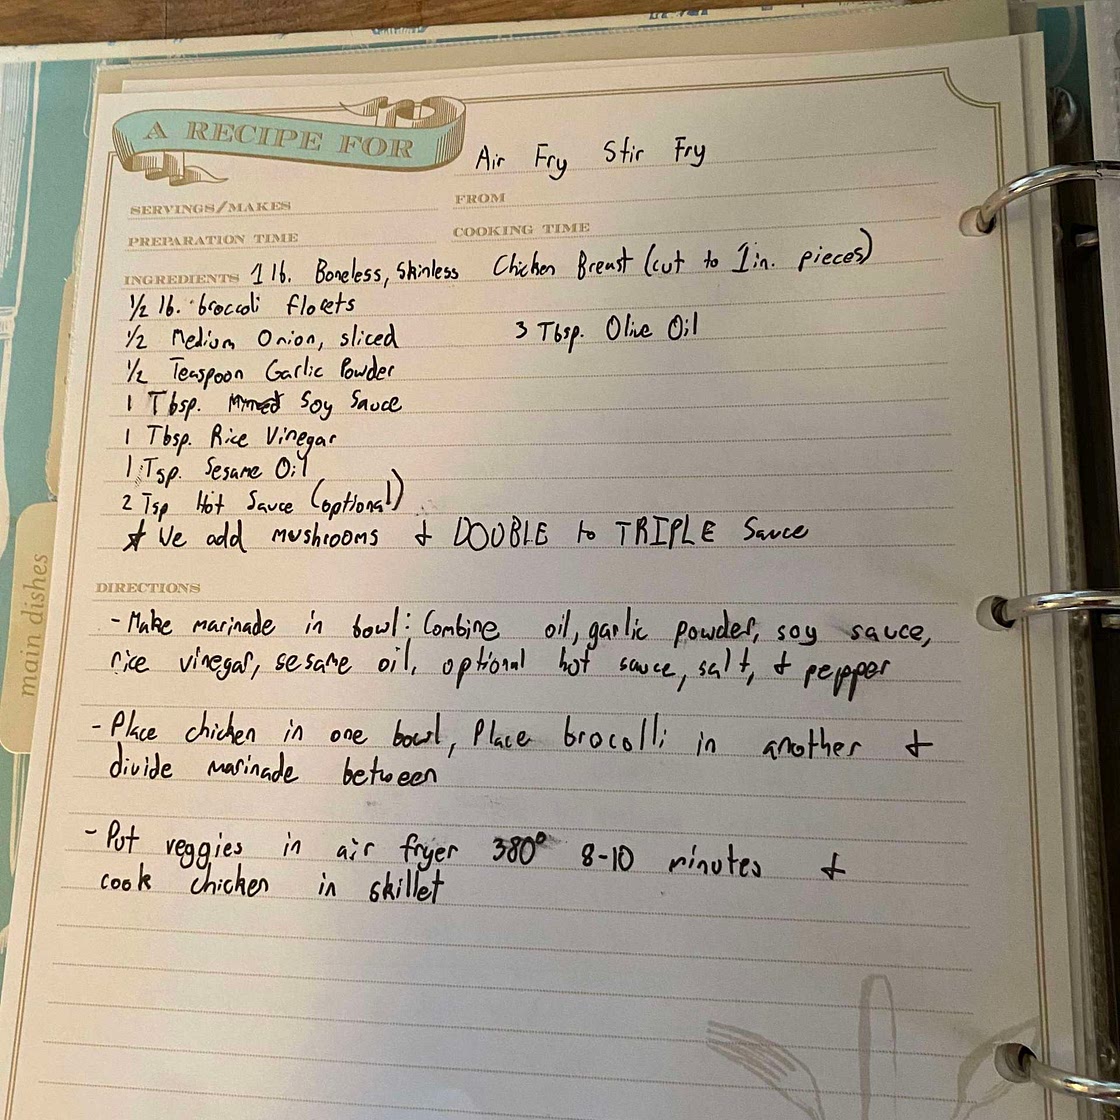 A RECIPE FOR Air Fry Stir Fry
SERVINGS/MAKES FROM
PREPARATION TIME COOKING TIME
INGREDIENTS 1 lb. Boneless, Skinless Chicken Breast (cut to 1 in. pieces)
1/2 lb. broccoli florets
1/2 Medium Onion, sliced 3 Tbsp. Olive Oil
1/2 Teaspoon Garlic Powder
1 Tbsp. Soy Sauce
1 Tbsp. Rice Vinegar
1 Tsp. Sesame Oil
2 Tsp Hot Sauce (optional)
★ We add mushrooms & DOUBLE to TRIPLE Sauce
DIRECTIONS
- Make marinade in bowl: Combine oil, garlic powder, soy sauce,
rice vinegar, sesame oil, optional hot sauce, salt, & pepper
- Place chicken in one bowl, Place brocolli in another &
divide marinade between
- Put veggies in air fryer 380° 8-10 minutes &
cook chicken in skillet
main dishes